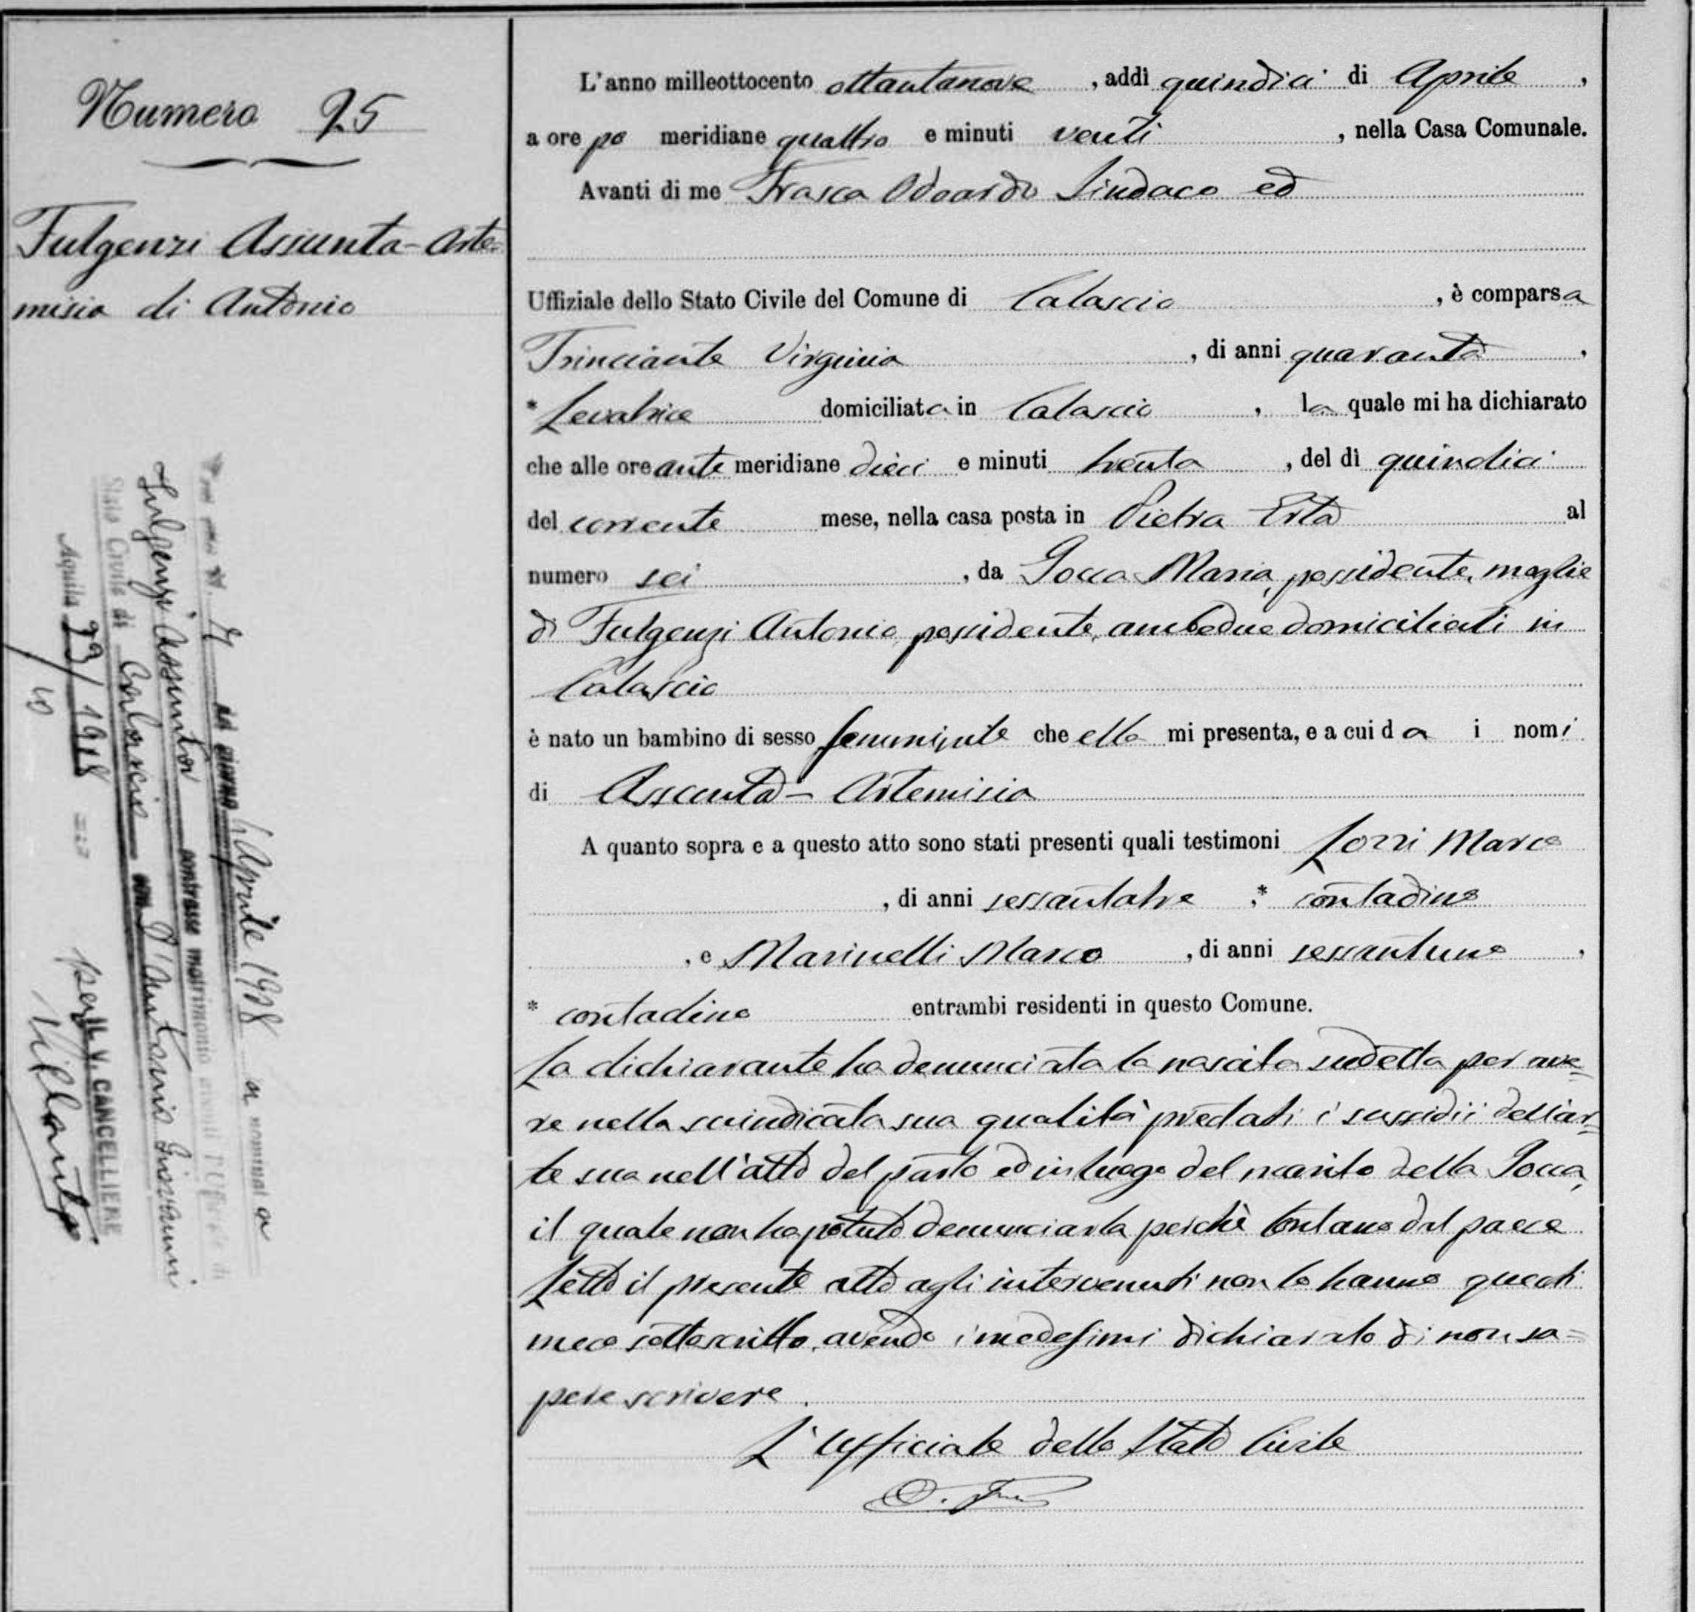 Numero 25
Fulgenzi Assunta-Arte=
misia di Antonio
L'anno milleottocento ottantanove, addì quindici di Aprile,
a ore po meridiane quattro e minuti venti, nella Casa Comunale.
Avanti di me Frasca Odoardo Sindaco ed
Uffiziale dello Stato Civile del Comune di Calascio, è comparsa
Trinciante Virginia, di anni quaranta,
* Levatrice domiciliata in Calascio, la quale mi ha dichiarato
che alle ore ante meridiane dieci e minuti trenta, del dì quindici
del corrente mese, nella casa posta in Pietra Erta al
numero sei, da Jocca Maria, possidente, moglie
di Fulgenzi Antonio possidente, ambedue domiciliati in
Calascio
è nato un bambino di sesso femminile che ella mi presenta, e a cui da i nomi
di Assunta - Artemisia
A quanto sopra e a questo atto sono stati presenti quali testimoni Lozzi Marco
, di anni sessantatre, * contadino
, e Marinelli Marco, di anni sessantuno,
* contadino entrambi residenti in questo Comune.
La dichiarante ha denunciata la nascita sudetta per ave=
re nella suindicata sua qualità prestati i sussidii dell'ar=
te sua nell'atto del parto ed in luogo del marito della Jocca,
il quale non ha potuto denunciarla perchè lontano dal paese
Letto il presente atto agli intervenuti non lo hanno questi
meco sottoscritto, avendo i medesimi dichiarato di non sa=
pere scrivere.
L'Ufficiale dello Stato Civile
Aprile 1918 n nominat a
Fulgenzi Assunta contrasse matrimonio avanti l'Ufficio di
Stato Civile di Calascio con D'Antonio Giovanni
Aquila 1918
per IL V. CANCELLIERE